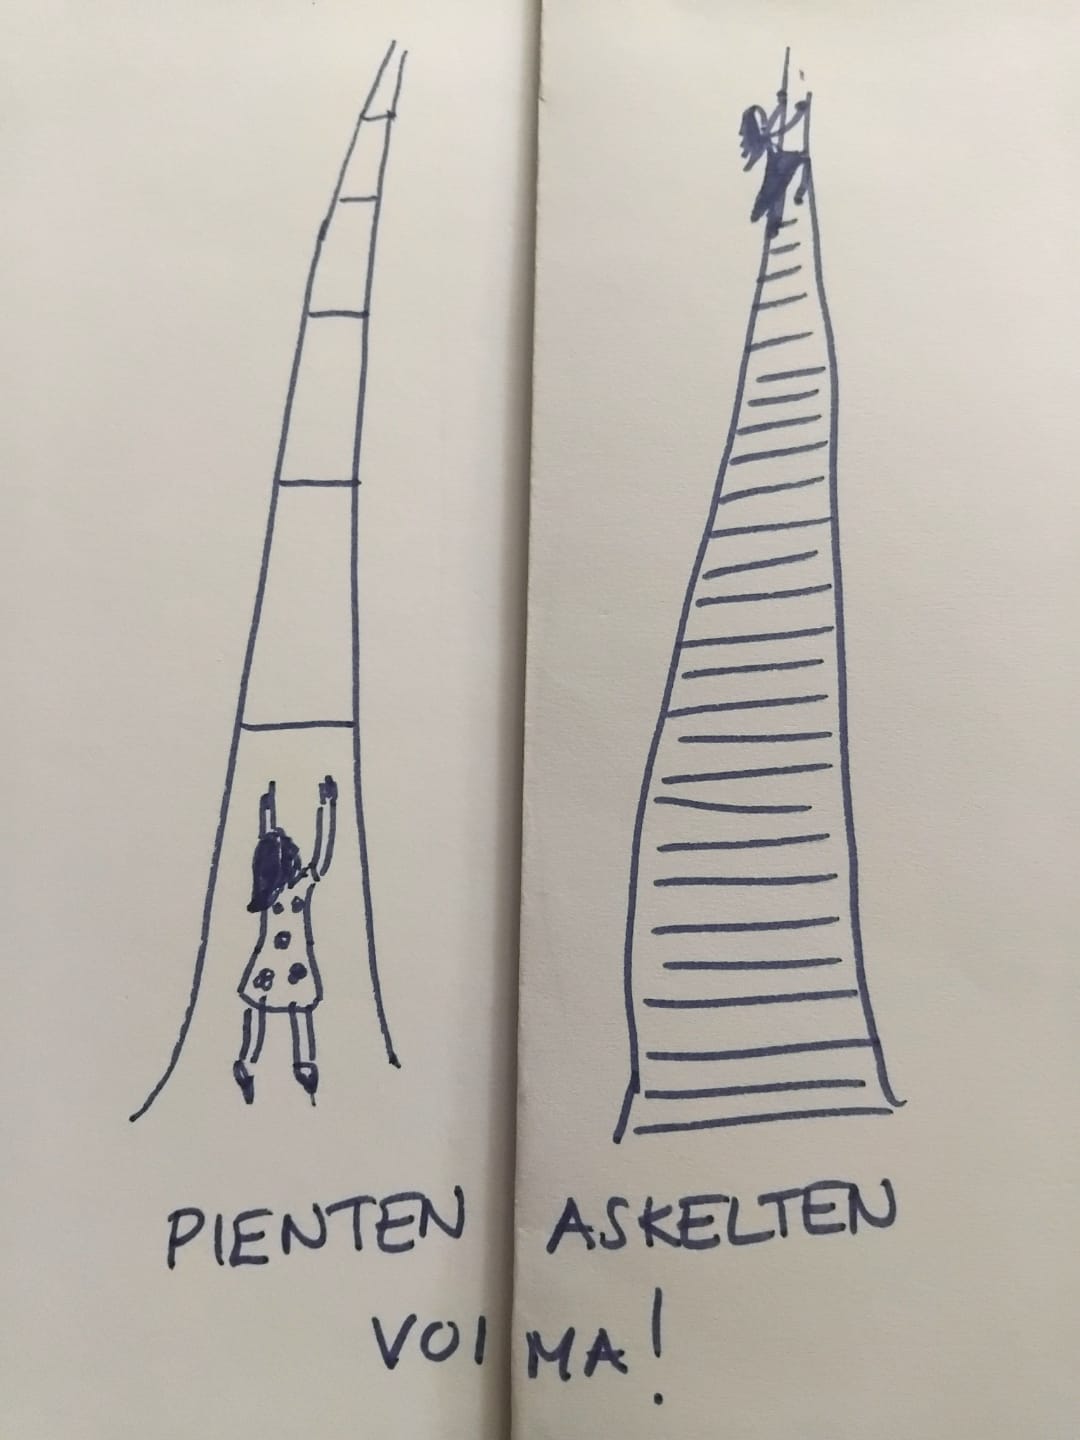 PIENTEN ASKELTEN
VOIMA!